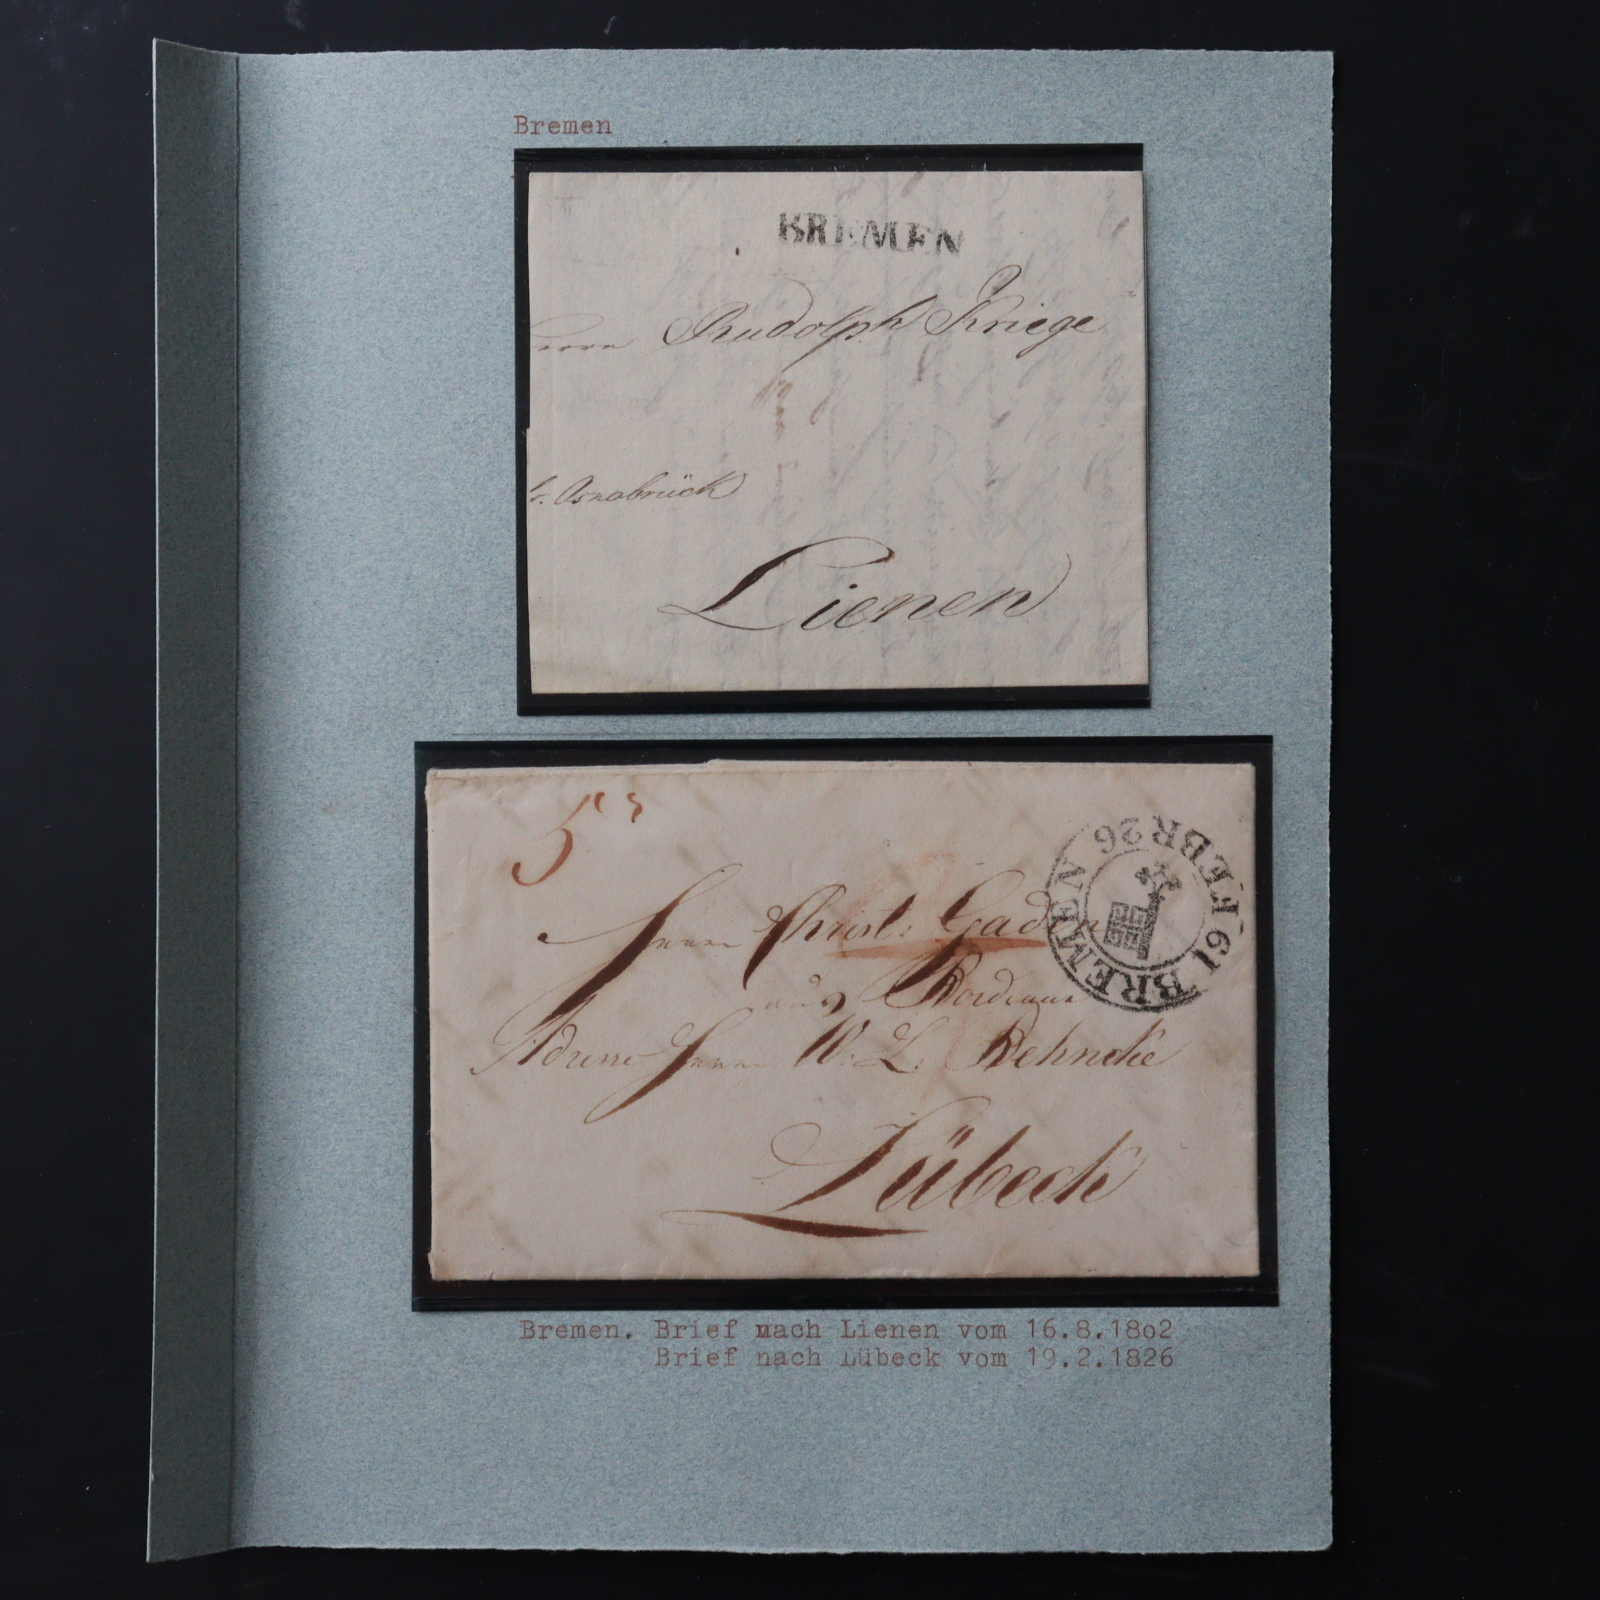 Bremen
BREMEN
Herrn Rudolph Kriege
Osnabrück
Lienen
5
BREMEN 19 FEBR 26
Herrn Christ: Gaden
aus Bordeaux
Herrn Behncke
Lübeck
Bremen. Brief nach Lienen vom 16.8.18o2
Brief nach Lübeck vom 19.2.1826